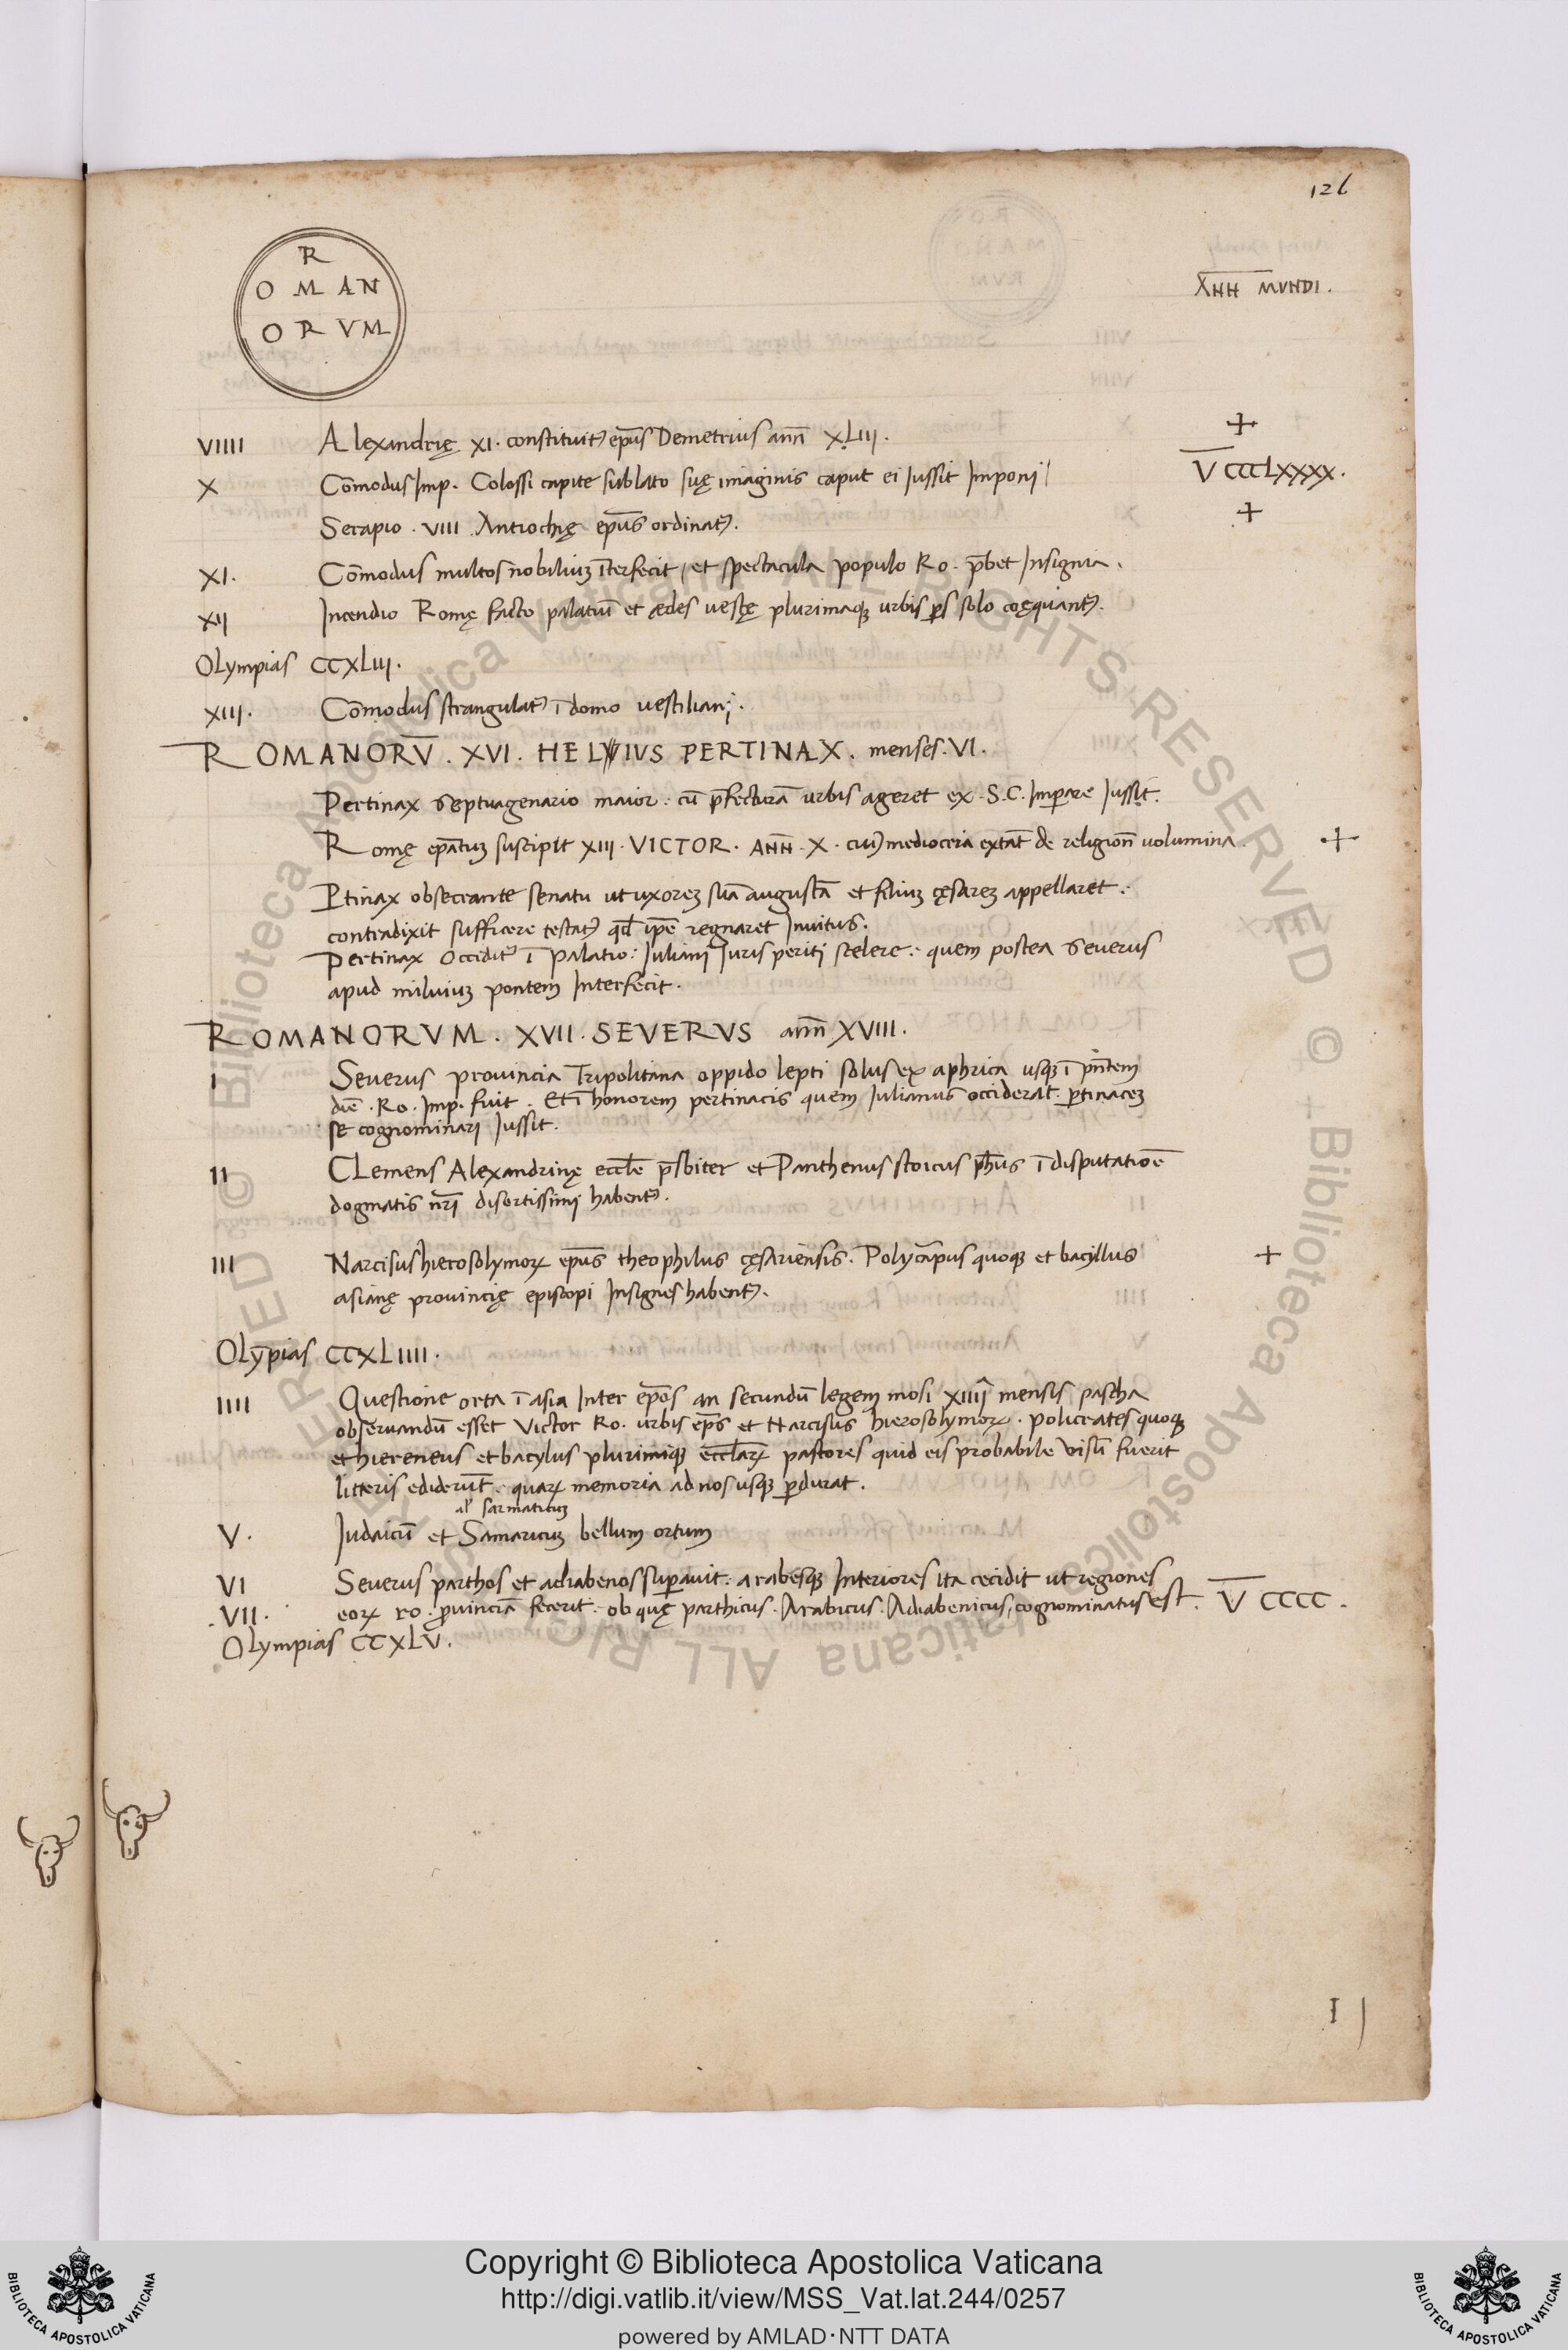 126
R
OMAN
ORVM
XNN MVNDI.
VIIII Alexandrię XI. constituit᷒ ep̅us Demetrius an̅n XLIII. +
X Co̅modus Imp. Colossi capite sublato suę imaginis caput ei Iussit Imponi / V̅ CCCLXXXX.
Serapio. VIII Antiochię ep̅us ordinat᷒. +
XI. Co̅modus multos nobiliuꝫ i̅terfecit / et spectacula populo Ro. p̅bet Insignia.
XII Incendio Romę facto palatiu̅ et ædes uestę plurimaqꝫ urbis p̅s solo coęquant᷒.
Olympias CCXLIII.
XIII. Co̅modus strangulat᷒ i̅ domo vestiliani.
ROMANORV̅. XVI. HELVIVS PERTINAX. menses. VI.
Pertinax septuagenario maior: cu̅ p̅fectura̅ urbis ageret ex. S.C. Imꝑare Iussit.
Romę ep̅atuꝫ suscipit XIII. VICTOR. AN̅N. X. cui᷒ mediocria exta̅t de religion̅ uolumina. +
Ꝑtinax obsecrante senatu ut uxoreꝫ sua̅ augusta̅ et filiuꝫ cęsareꝫ appellaret:
contradixit sufficere testat᷒ qđ ip̅e regnaret Inuitus.
Pertinax Occidit᷒ i̅ palatio: Iuliani Iuris periti scelere: quem postea Seuerus
apud miluiuꝫ pontem Interfecit.
ROMANORVM. XVII. SEVERVS an̅n XVIII.
I Seuerus prouincia Tripolitana oppido lepti solus ex aphrica usqꝫ i̅ pn̅tem
die̅. Ro. Imp. fuit. Et i̅ honorem pertinacis quem Iulianus occiderat. ꝑtinaceꝫ
se cognominari Iussit.
II CLemens Alexandrinę eccl̅e p̅sbiter et Panthenus stoicus ph̅us i̅ disputatio̅e
dogmatis nr̅i disertissimi habent᷒.
III Narcisus hierosolymoꝝ ep̅us theophilus cęsariensis. Polyca̅pus quoqꝫ et bacyllus +
asianę prouincię episcopi Insignes habent᷒.
Oly̅pias CCXLIIII.
IIII Questione orta i̅ asia Inter ep̅os an secundu̅ legem mosi XIIII mensis pascha
obseruandu̅ esset Victor Ro. urbis ep̅s et Narcisus hierosolymoꝝ. policrates quoqꝫ
et hiereneus et bacylus plurimiqꝫ eccl̅aꝝ pastores quid eis probabile visu̅ fuerit
litteris ediderut̅. quaꝝ memoria ad nos usqꝫ ꝑdurat.
al' sarmaticuꝫ
V. Iudaicu̅ et Samaricuꝫ bellum ortum
VI Seuerus parthos et adiabenos suꝑauit: arabesqꝫ Interiores ita cecidit ut regiones
VII. eoꝝ ro. ꝓuincia̅ fecerit. ob quę parthicus. Arabicus. Adiabenicus, cognominatus est. V̅ CCCC.
Olympias CCXLV.
I
Copyright © Biblioteca Apostolica Vaticana
http://digi.vatlib.it/view/MSS_Vat.lat.244/0257
powered by AMLAD·NTT DATA